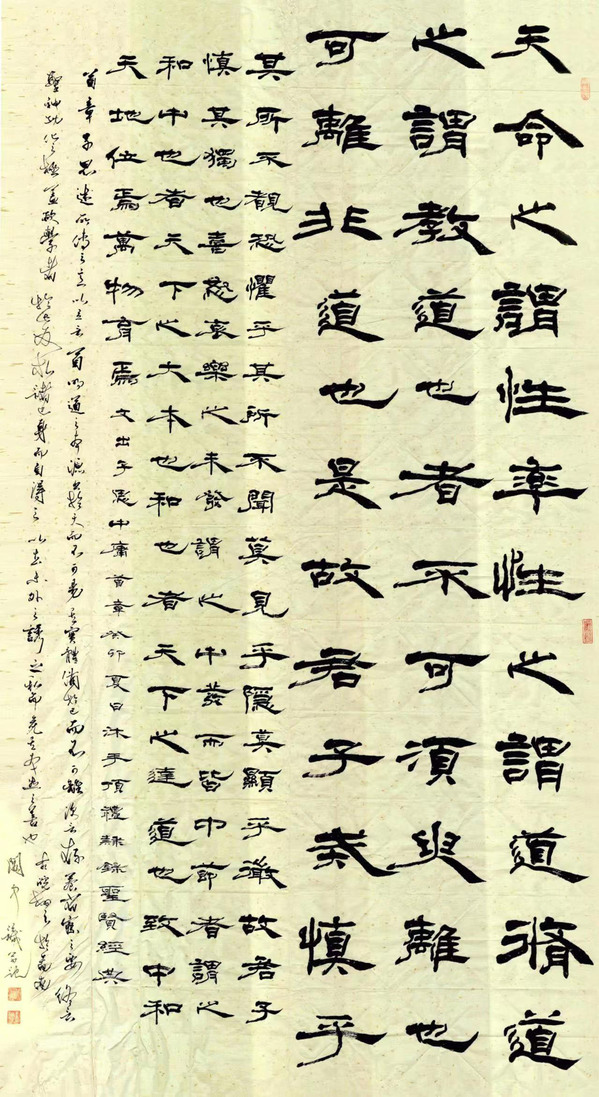 天命之謂性率性之謂道脩道
之謂教道也者不可須臾離也
可離非道也是故君子戒慎乎
其所不覩恐懼乎其所不聞莫見乎隱莫顯乎微故君子
慎其獨也喜怒哀樂之未發謂之中發而皆中節者謂之
和中也者天下之大本也和也者天下之達道也致中和
天地位焉萬物育焉文出子思中庸首章癸卯夏日沐手頂禮隸錄聖賢經典
首章子思述所傳之意以立言首明道之本源出於天而不可易其實體備於己而不可離次言存養省察之要終言
聖神功化之極蓋欲學者於此反求諸己身而自得之以去外之誘之私而充其本然之善也